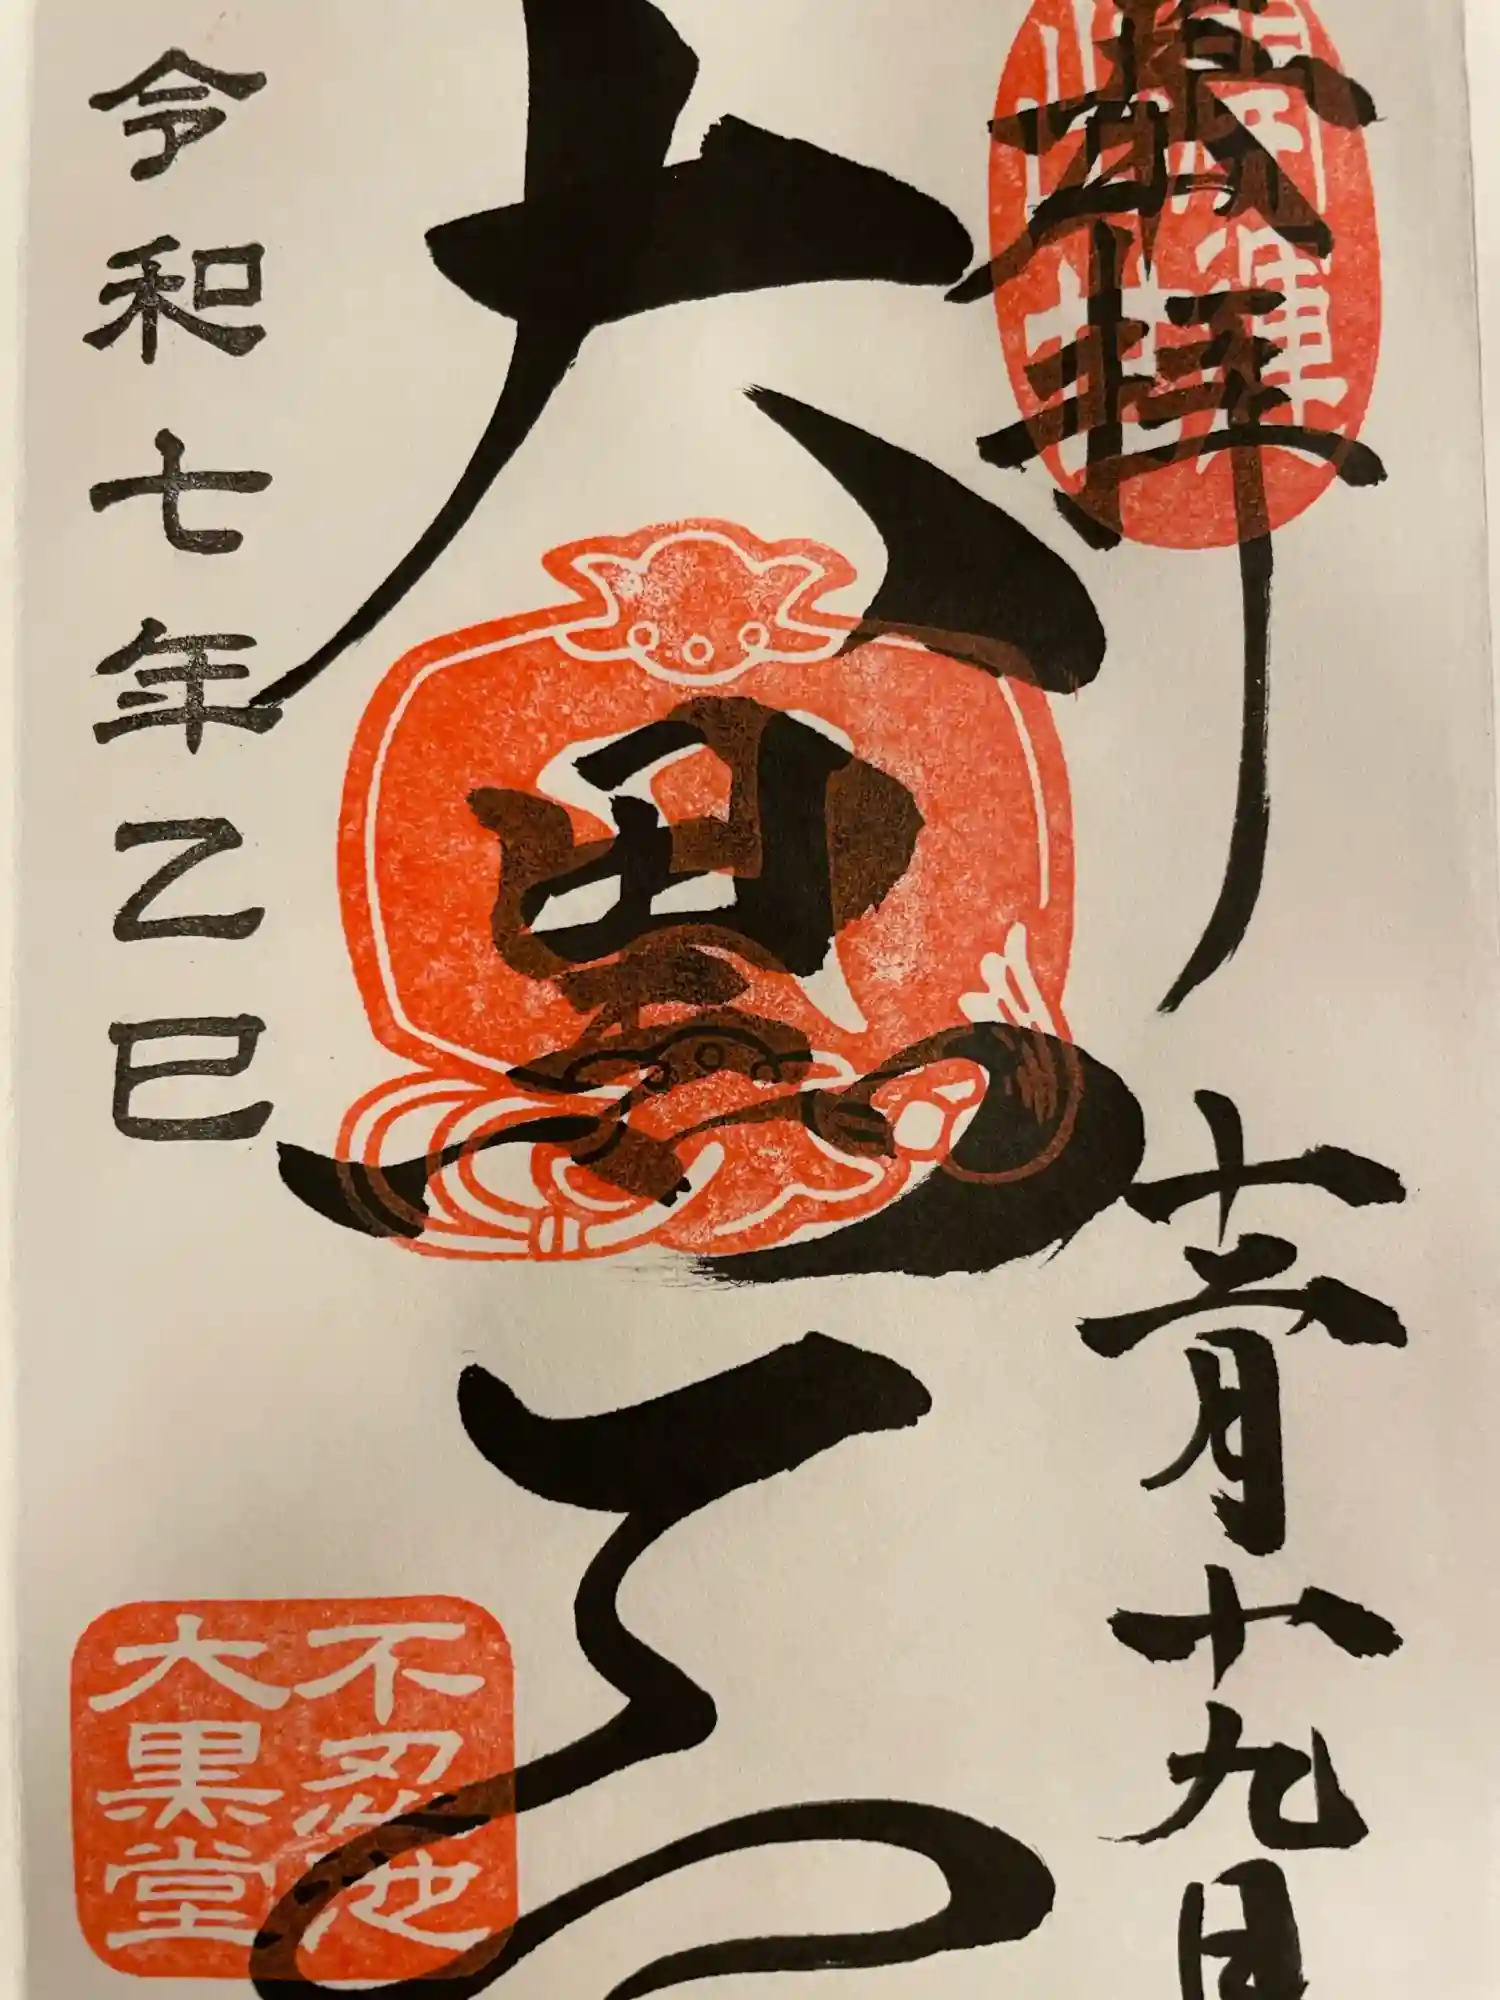 奉拝
十二月十九日
大黒天
令和七年乙巳
不忍池
大黒堂